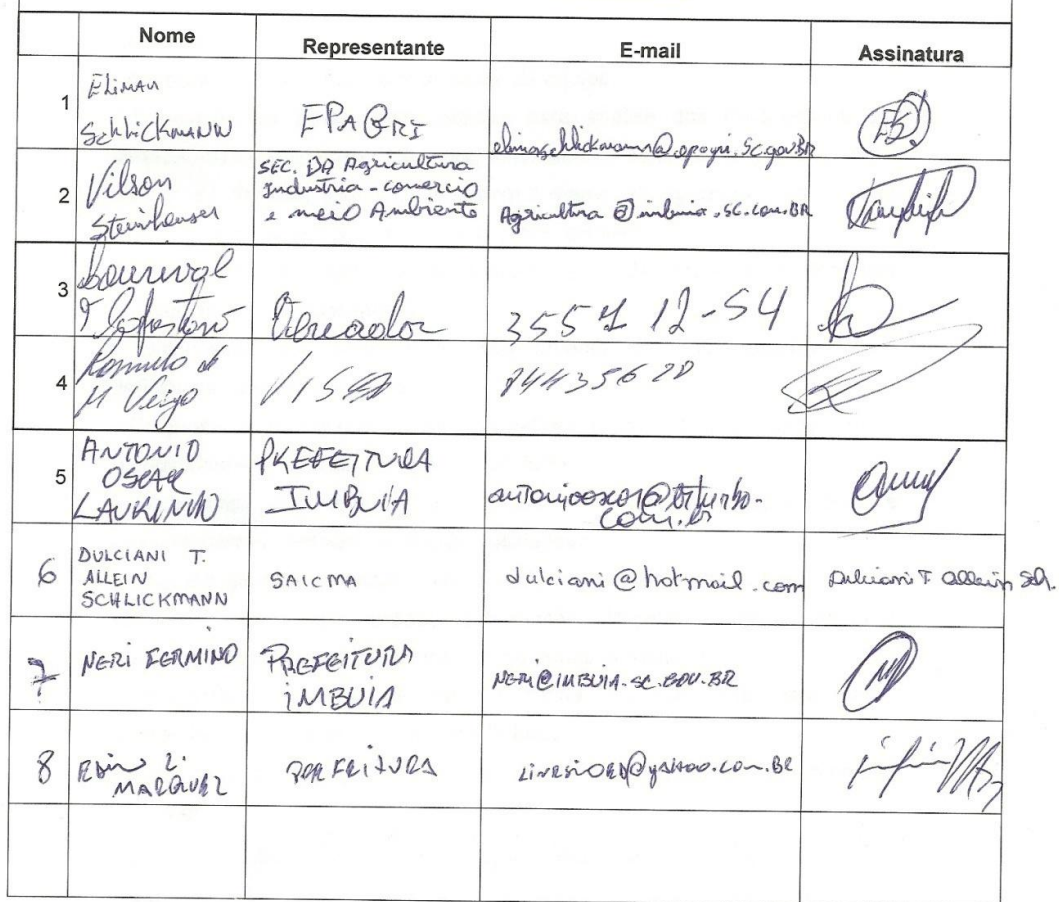 Nome Representante E-mail Assinatura
1 Elimar
Schlickmann EPAGRI
2 Vilson
Steinhauser SEC. DA Agricultura
Industria - comercio
e meio Ambiente Agricultura @ imbuia.SC.com.BR
3 Vereador 3557 12-54
4 Romulo de
M Veigo 84435620
5 ANTONIO
OSCAR
LAURINDO PREFEITURA
IMBUIA
com.br
6 DULCIANI T.
ALLEIN
SCHLICKMANN SAICMA dulciani@hotmail.com Dulciani T Allein Sch.
7 NERI FERMINO PREFEITURA
IMBUIA NERI@IMBUIA.SC.GOV.BR
8 MARQUEZ PREFEITURA